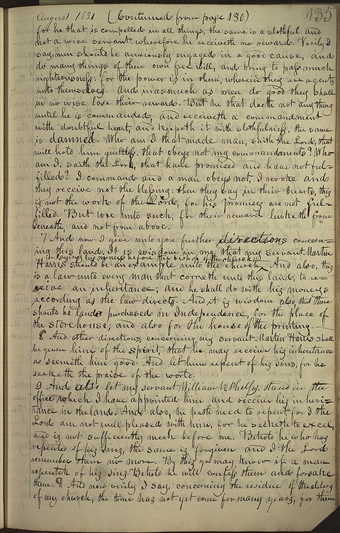 August 1831 (Continued from page 130) 135
for he that is compelled in all things, the same is a slothful and
not a wise servant wherefore he receiveth no reward. Verily I
say, men should be anxiously engaged in a good cause, and
do many things of their own free will, and bring to pass much
righteousness: For the power is in them, wherein they are agents
unto themselves. And inasmuch as men do good they shall
in no wise lose their reward. But he that doeth not any thing
until he is commanded, and receiveth a commandment
with doubtful heart, and keepeth it with slothfulness, the same
is damned. Who am I that made man, saith the Lord, that
will hold him guiltless, that obeys not my commandments? Who
am I, saith the Lord, that have promised and have not ful-
filled? I command and a man obeys not, I revoke and
they receive not the blessing: then they say in their hearts, this
is not the work of the Lord, for his promises are not ful-
filled. But wo unto such, for their reward lurketh from
beneath, and not from above.
7 And now I give unto you further directions concern-
ing this land. It is wisdom in me, that my servant Martin
Harris should be an example unto the church,
in laying his moneys before the bishop of the church. And also, this
is a law unto every man that cometh unto this land, to re-
ceive an inheritance; and he shall do with his moneys
according as the law directs. And it is wisdom also, that there
should be lands purchased in Independence, for the place of
the storehouse; and also for the house of the printing.
8 And other directions, concerning my servant Martin Harris shall
be given him of the spirit, that he may receive his inheritance
as seemeth him good. And let him repent of his sins, for he
seeketh the praise of the world.
9 And also let my servant William W. Phelps, stand in the
office which I have appointed him and receive his inheri-
tance in the land. And also, he hath need to repent, for I the
Lord am not well pleased with him, for he seeketh to excel,
and is not sufficiently meek before me. Behold he who has
repented of his sins, the same is forgiven and I the Lord
remember them no more. By this ye may know if a man
repenteth of his sins. Behold he will confess them and forsake
them. And now verily I say, concerning the residue of the elders
of my church, the time has not yet come for many years, for them